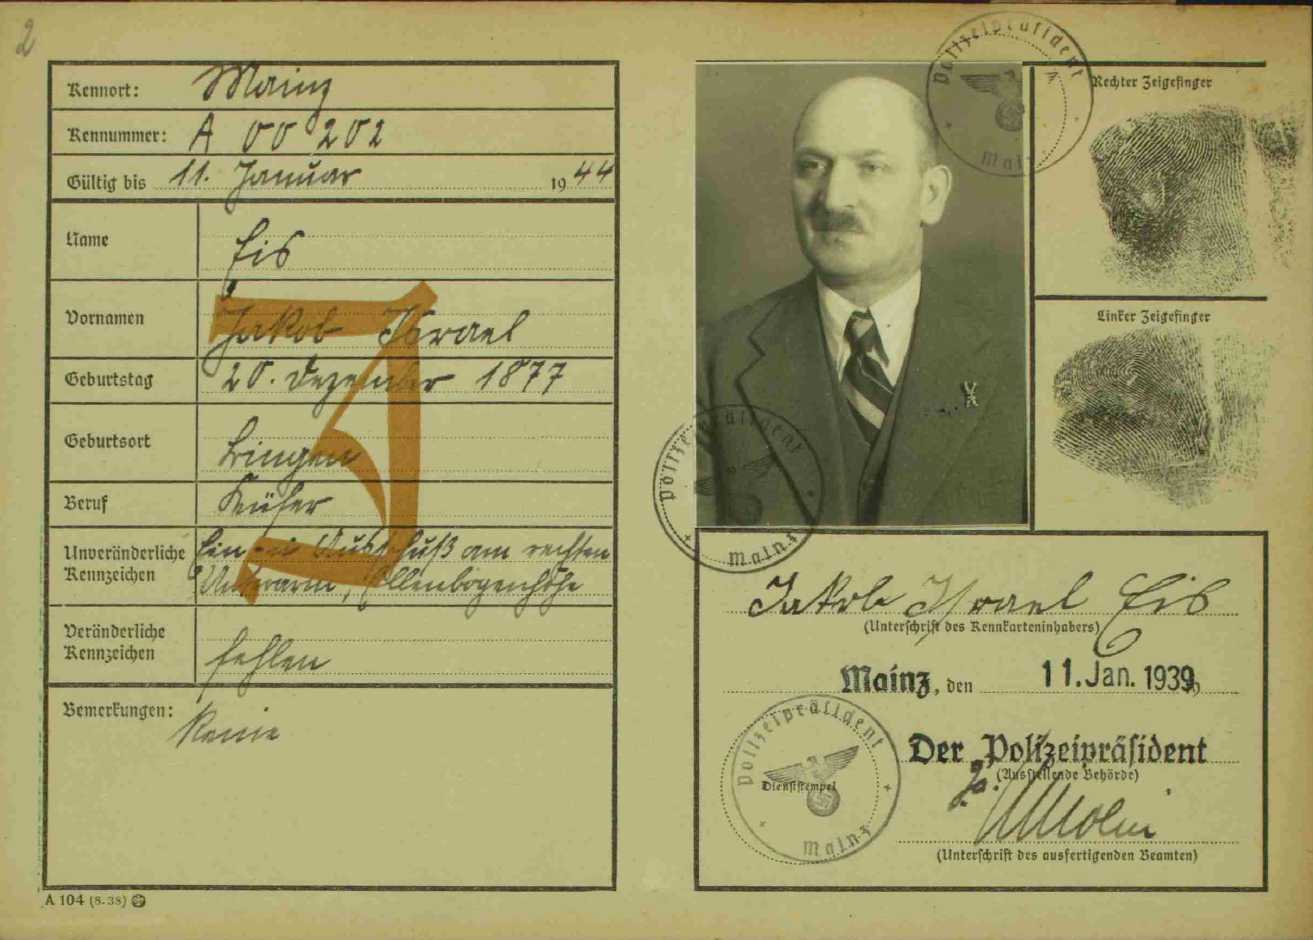 2
Kennort: Mainz
Kennummer: A 00202
Gültig bis 11. Januar 1944
Name Eis
Vornamen Jakob Israel
Geburtstag 20. Dezember 1877
Geburtsort Bingen
Beruf Küfer
Unveränderliche Kennzeichen Ein- u Ausschuß am rechten
Unterarm, Ellenbogenhöhe
Veränderliche Kennzeichen fehlen
Bemerkungen: Keine
J
A 104 (8.38)
Polizeipräsident
Mainz
Rechter Zeigefinger
Linker Zeigefinger
Polizeipräsident
Mainz
Jakob Israel Eis
(Unterschrift des Kennkarteninhabers)
Mainz, den 11. Jan. 1939
Polizeipräsident
Dienststempel
Mainz
Der Polizeipräsident
(Ausstellende Behörde)
(Unterschrift des ausfertigenden Beamten)